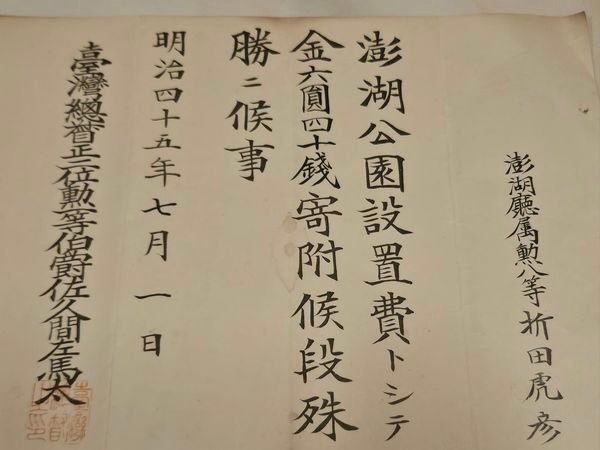 澎湖廳属勲八等折田虎彦
澎湖公園設置費トシテ
金六圓四十錢寄附候段殊
勝ニ候事
明治四十五年七月一日
臺灣總督正二位勲一等伯爵佐久間左馬太